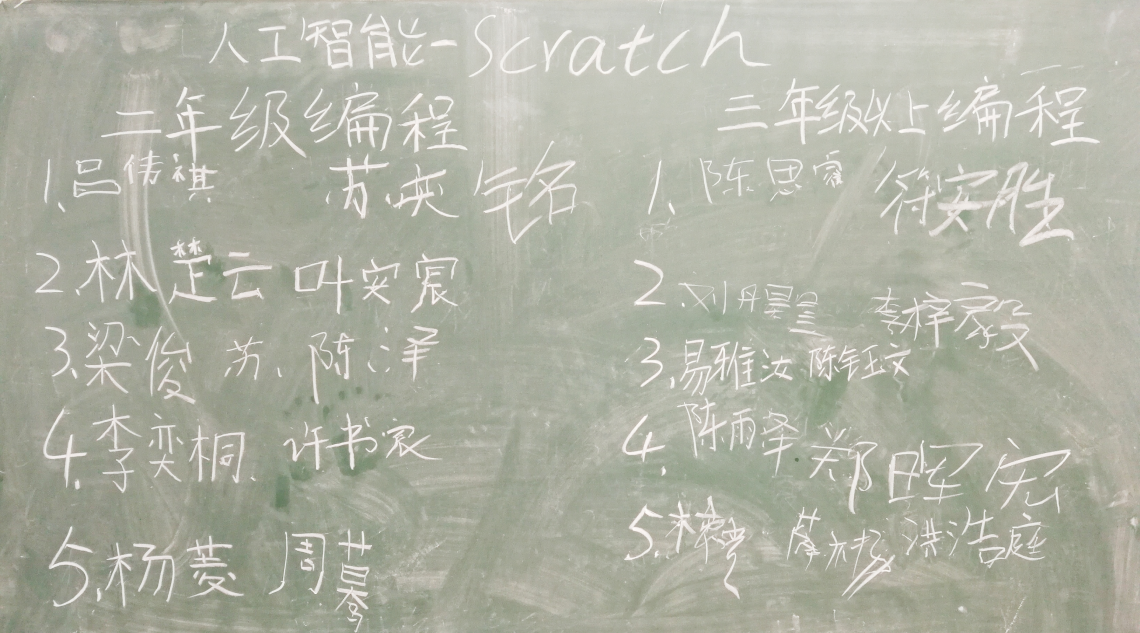 人工智能-Scratch
二年级编程
1.吕伟祺 苏奕铭
2.林楚云 叶安宸
3.梁俊苏、陈泽
4.李奕桐. 许书宸
5.杨菱 周
三年级以上编程
1.陈思睿 符安胜
2.刘丹 李梓毅
3.易雅汝 陈钰文
4.陈雨泽 郑晖宏
5. 洪浩庭